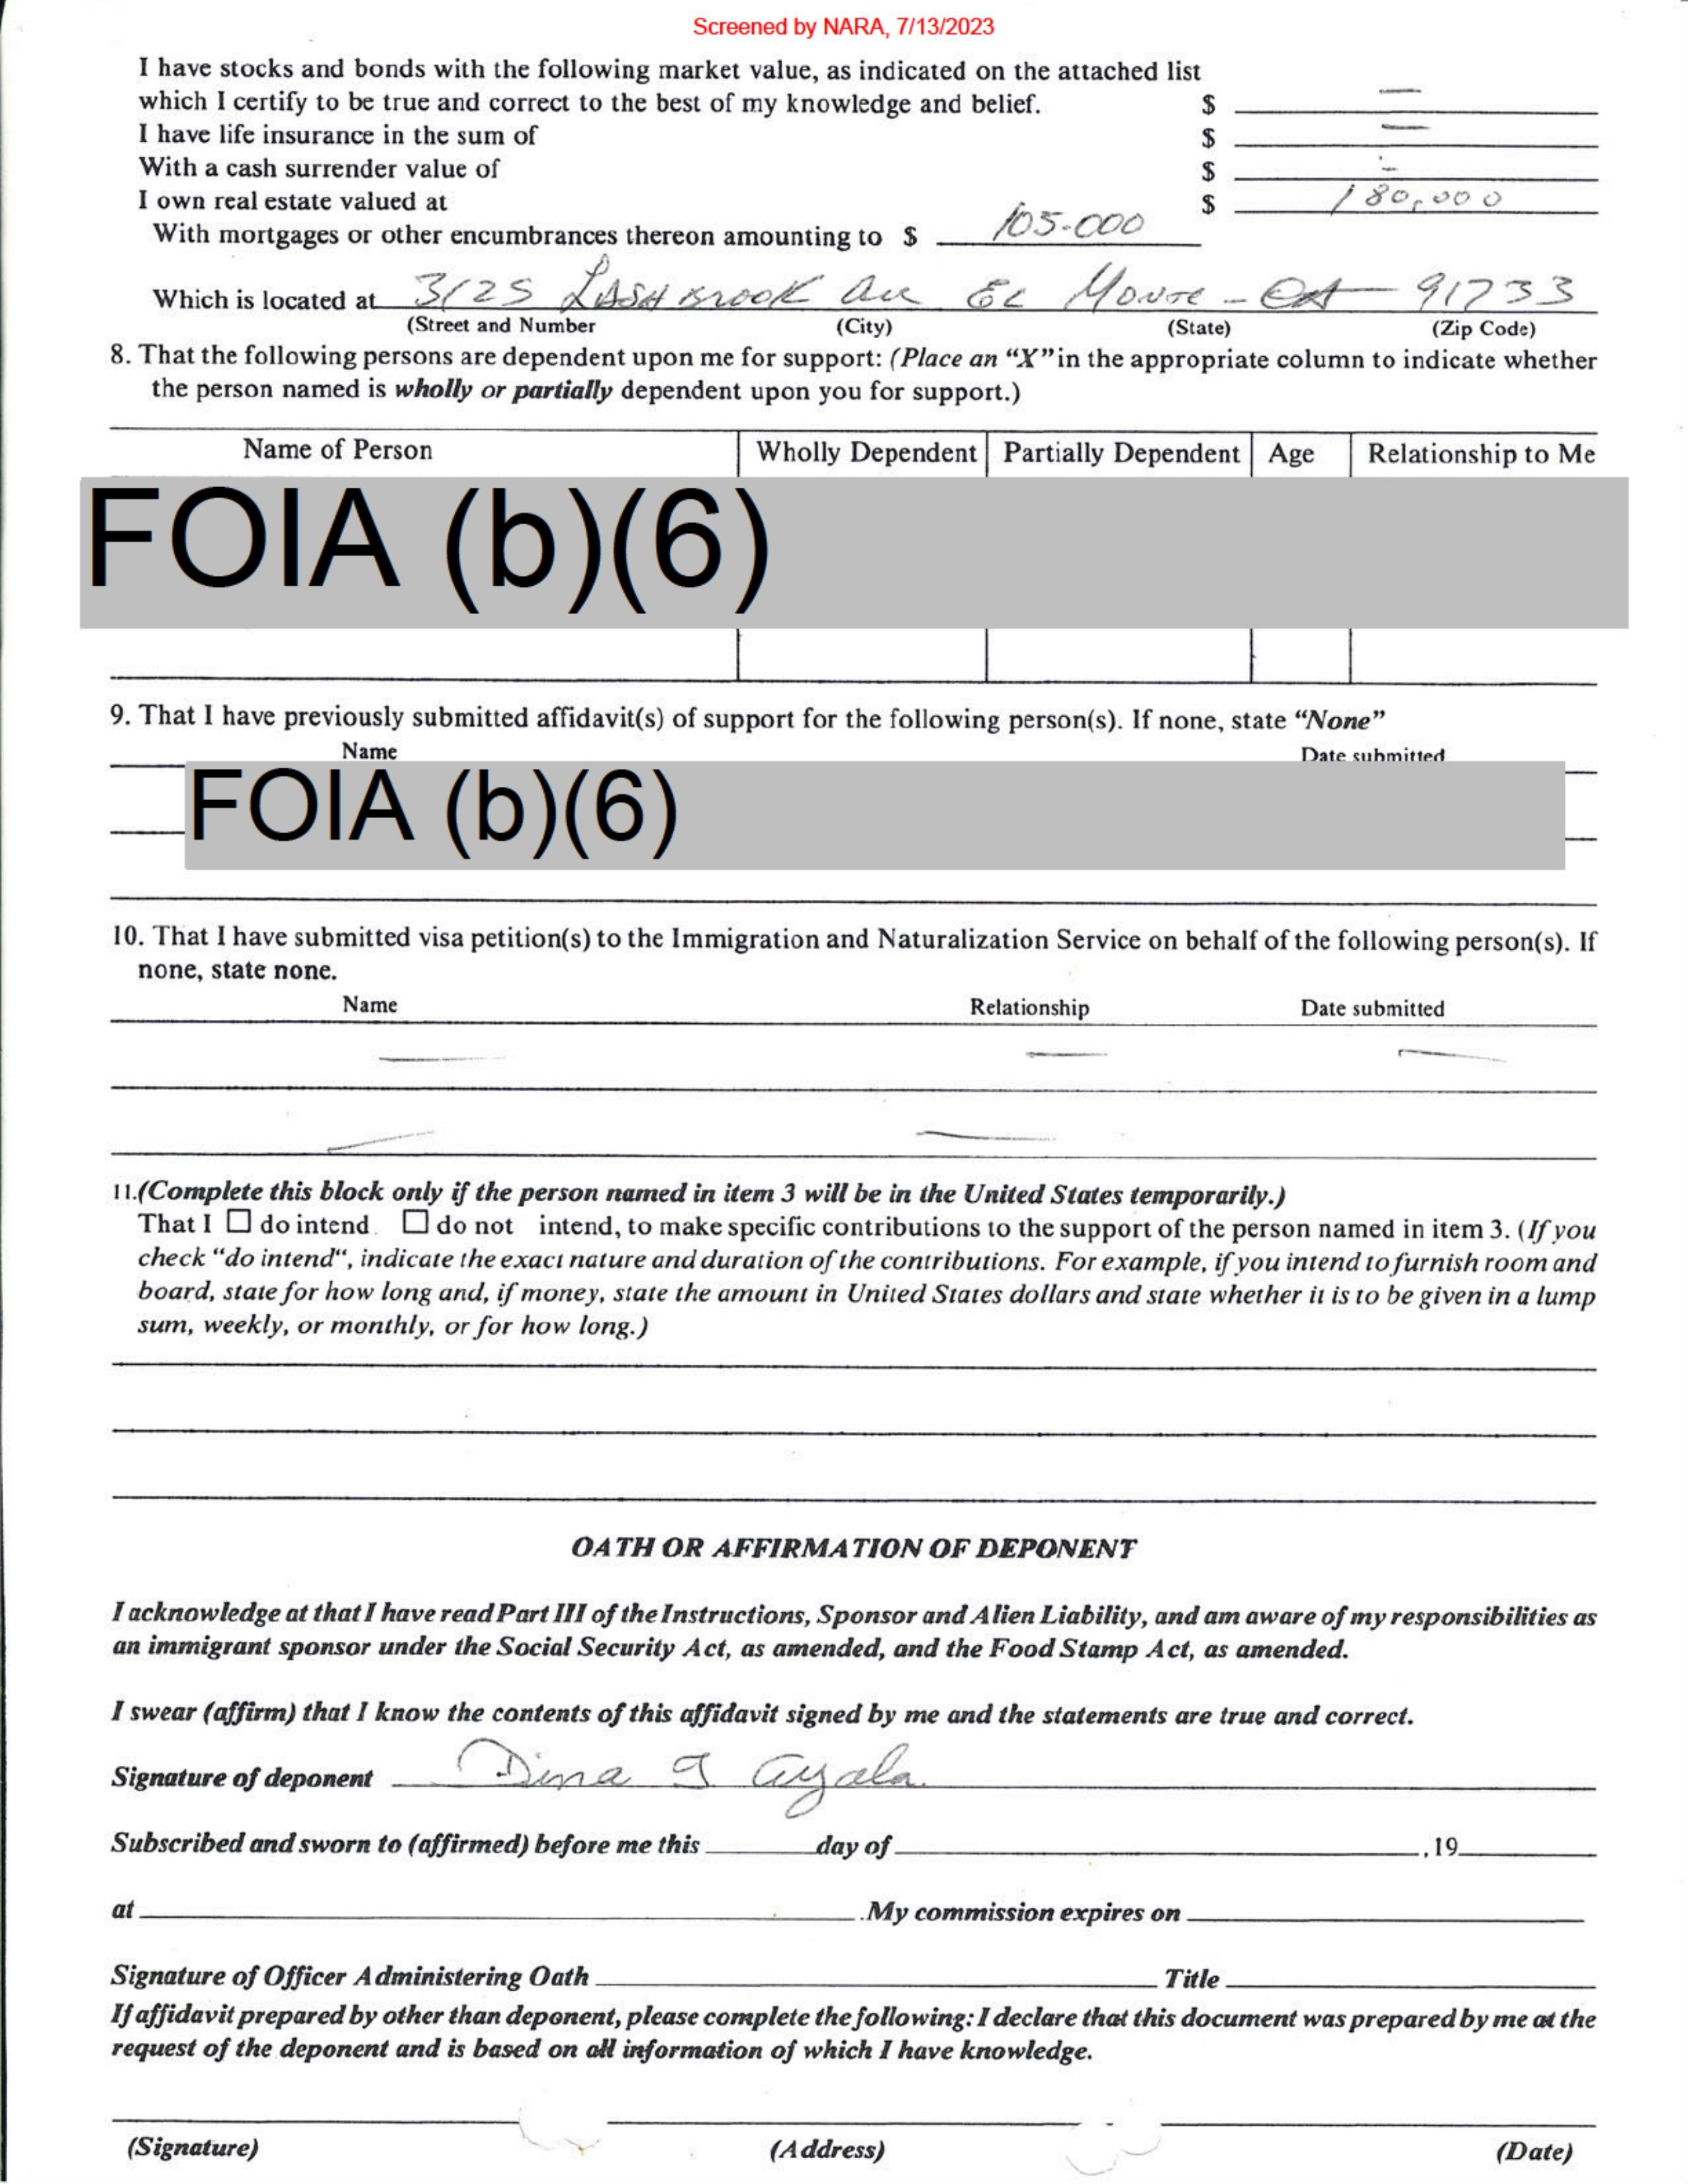 Screened by NARA, 7/13/2023
I have stocks and bonds with the following market value, as indicated on the attached list
which I certify to be true and correct to the best of my knowledge and belief. $ —
I have life insurance in the sum of $ —
With a cash surrender value of $ -
I own real estate valued at $ 180,000
With mortgages or other encumbrances thereon amounting to $ 105-000
Which is located at 3125 LASHBROOK Ave EL MONTE - CA 91733
(Street and Number (City) (State) (Zip Code)
8. That the following persons are dependent upon me for support: (Place an “X” in the appropriate column to indicate whether
the person named is wholly or partially dependent upon you for support.)
Name of Person Wholly Dependent Partially Dependent Age Relationship to Me
FOIA (b)(6)
9. That I have previously submitted affidavit(s) of support for the following person(s). If none, state “None”
Name Date submitted
FOIA (b)(6)
10. That I have submitted visa petition(s) to the Immigration and Naturalization Service on behalf of the following person(s). If
none, state none.
Name Relationship Date submitted
— — —
— —
11.(Complete this block only if the person named in item 3 will be in the United States temporarily.)
That I ☐ do intend ☐ do not intend, to make specific contributions to the support of the person named in item 3. (If you
check “do intend“, indicate the exact nature and duration of the contributions. For example, if you intend to furnish room and
board, state for how long and, if money, state the amount in United States dollars and state whether it is to be given in a lump
sum, weekly, or monthly, or for how long.)
OATH OR AFFIRMATION OF DEPONENT
I acknowledge at that I have read Part III of the Instructions, Sponsor and Alien Liability, and am aware of my responsibilities as
an immigrant sponsor under the Social Security Act, as amended, and the Food Stamp Act, as amended.
I swear (affirm) that I know the contents of this affidavit signed by me and the statements are true and correct.
Signature of deponent Dina I Ayala.
Subscribed and sworn to (affirmed) before me this day of , 19
at . My commission expires on
Signature of Officer Administering Oath Title
If affidavit prepared by other than deponent, please complete the following: I declare that this document was prepared by me at the
request of the deponent and is based on all information of which I have knowledge.
(Signature) (Address) (Date)